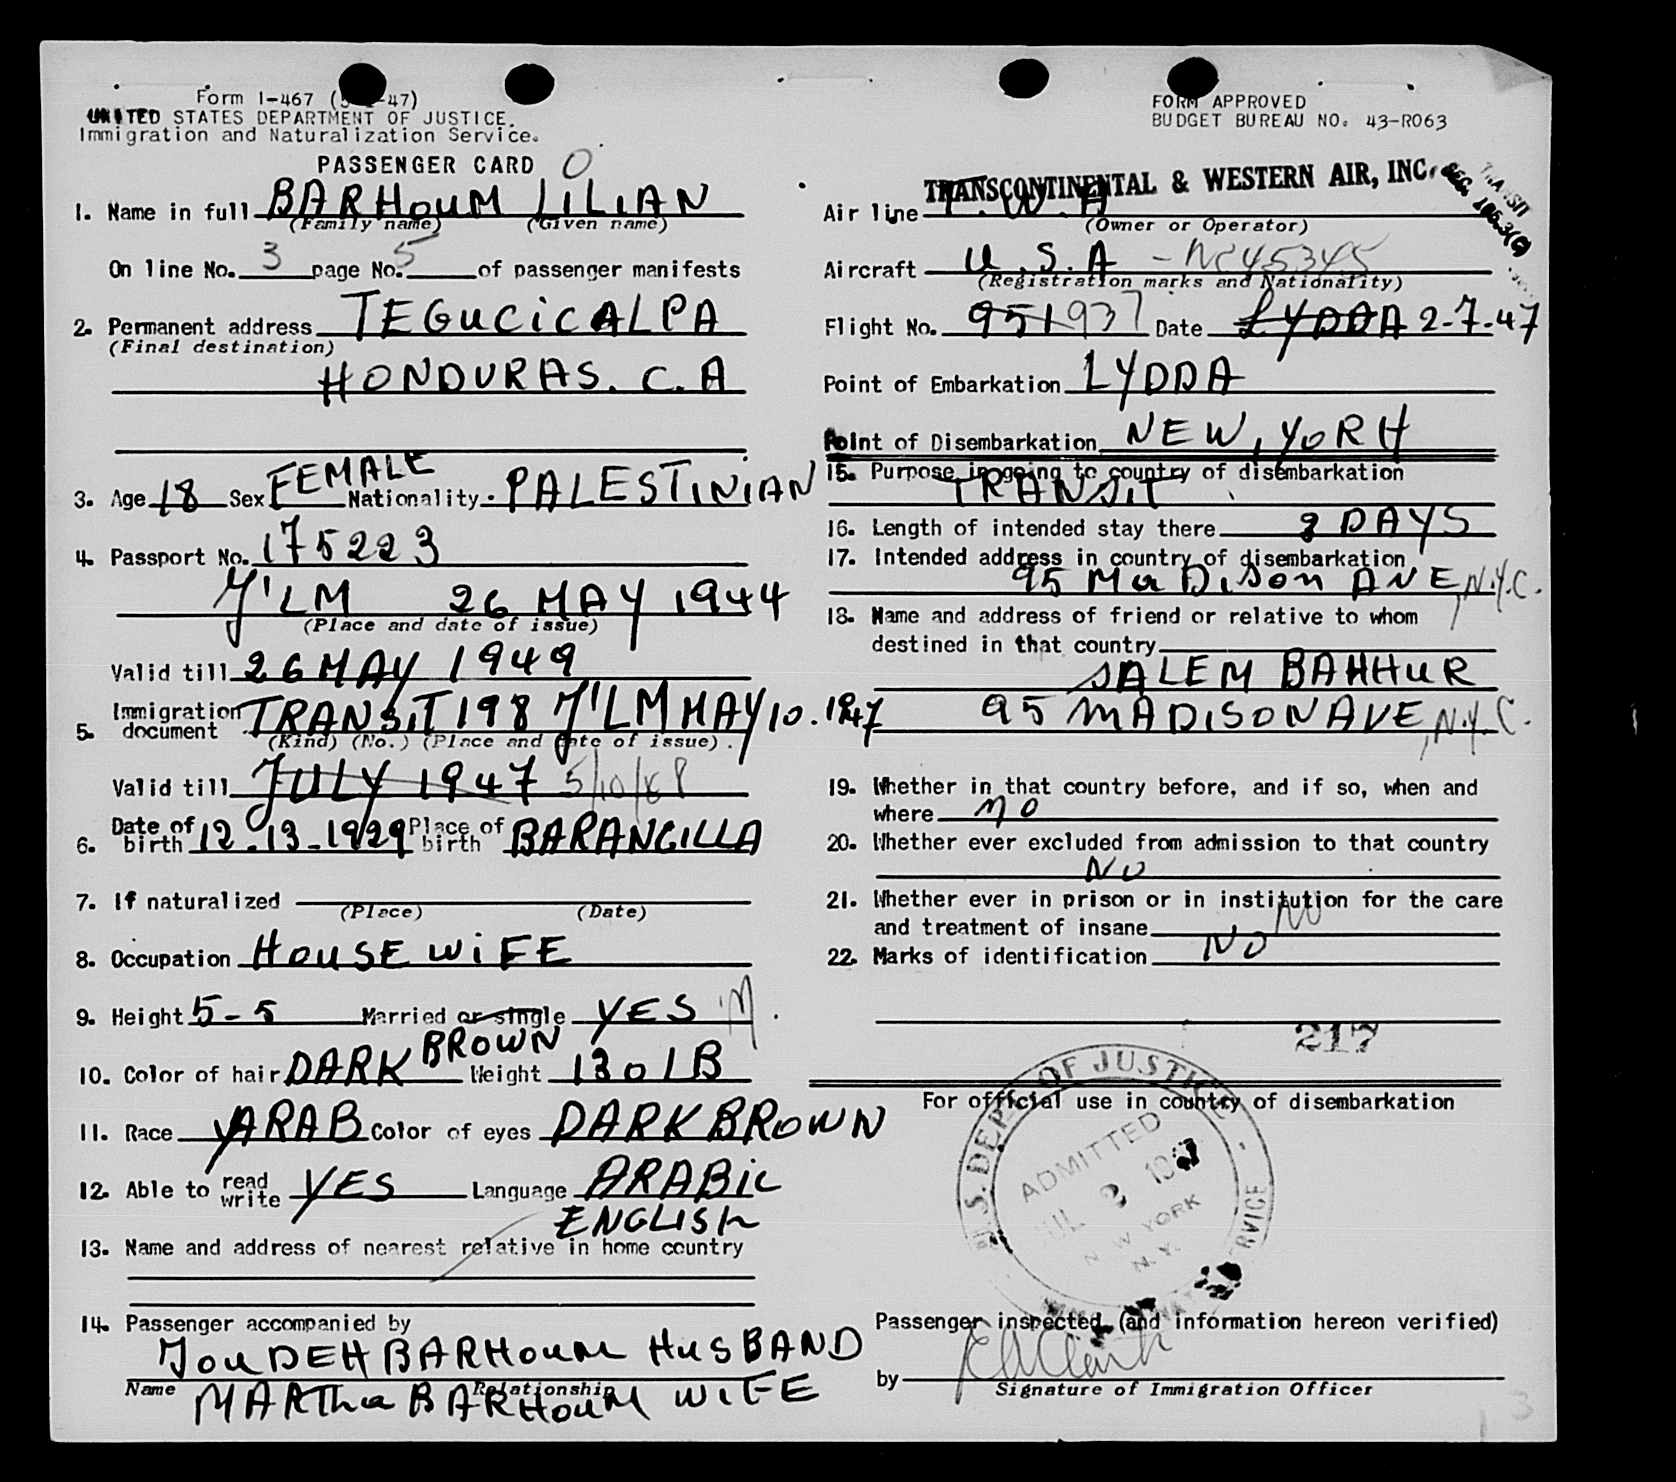 Form I-467 (5-1-47)
UNITED STATES DEPARTMENT OF JUSTICE.
Immigration and Naturalization Service.
PASSENGER CARD O
1. Name in full BARHOUM LILIAN
(Family name) (Given name)
On line No. 3 page No. 5 of passenger manifests
2. Permanent address TEGUCICALPA
(Final destination)
HONDURAS. C. A
3. Age 18 Sex FEMALE Nationality PALESTINIAN
4. Passport No. 175223
J'LM 26 MAY 1944
(Place and date of issue)
Valid till 26 MAY 1949
5. Immigration document TRANSIT 198 J'LM MAY 10. 1947
(Kind) (No.) (Place and date of issue).
Valid till JULY 1947 5/10/48
6. Date of birth 12-13-1929 Place of birth BARANGILLA
7. If naturalized
(Place) (Date)
8. Occupation HOUSE WIFE
9. Height 5-5 Married or single YES M.
10. Color of hair DARK BROWN Weight 130 LB
11. Race ARAB Color of eyes DARK BROWN
12. Able to read write YES Language ARABIC
ENGLISH
13. Name and address of nearest relative in home country
14. Passenger accompanied by
JOUDEH BARHOUM HUSBAND
Name Relationship
MARTHA BARHOUM WIFE
FORM APPROVED
BUDGET BUREAU NO. 43-R063
TRANSCONTINENTAL & WESTERN AIR, INC.
SEC. 106.3(C)
TRANSIT
Air line T.W.A
(Owner or Operator)
Aircraft U.S.A - NC45345
(Registration marks and Nationality)
Flight No. 951 937 Date LYDDA 2-7-47
Point of Embarkation LYDDA
Point of Disembarkation NEW, YORH
15. Purpose in going to country of disembarkation
TRANSIT
16. Length of intended stay there 8 DAYS
17. Intended address in country of disembarkation
95 MADISON AVE, N.Y.C.
18. Name and address of friend or relative to whom
destined in that country
SALEM BAHHUR
95 MADISON AVE, N.Y.C.
19. Whether in that country before, and if so, when and
where NO
20. Whether ever excluded from admission to that country
NO
21. Whether ever in prison or in institution for the care
and treatment of insane NO
22. Marks of identification NO
217
For official use in country of disembarkation
U.S. DEPT. OF JUSTICE
ADMITTED
JUL 3 1947
NEW YORK
N.Y.
Passenger inspected (and information hereon verified)
by
Signature of Immigration Officer
13